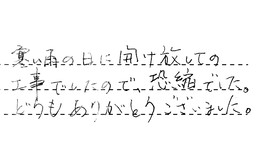 寒い雨の日に開け放しての
工事でしたので、恐縮でした。
どうもありがとうございました。